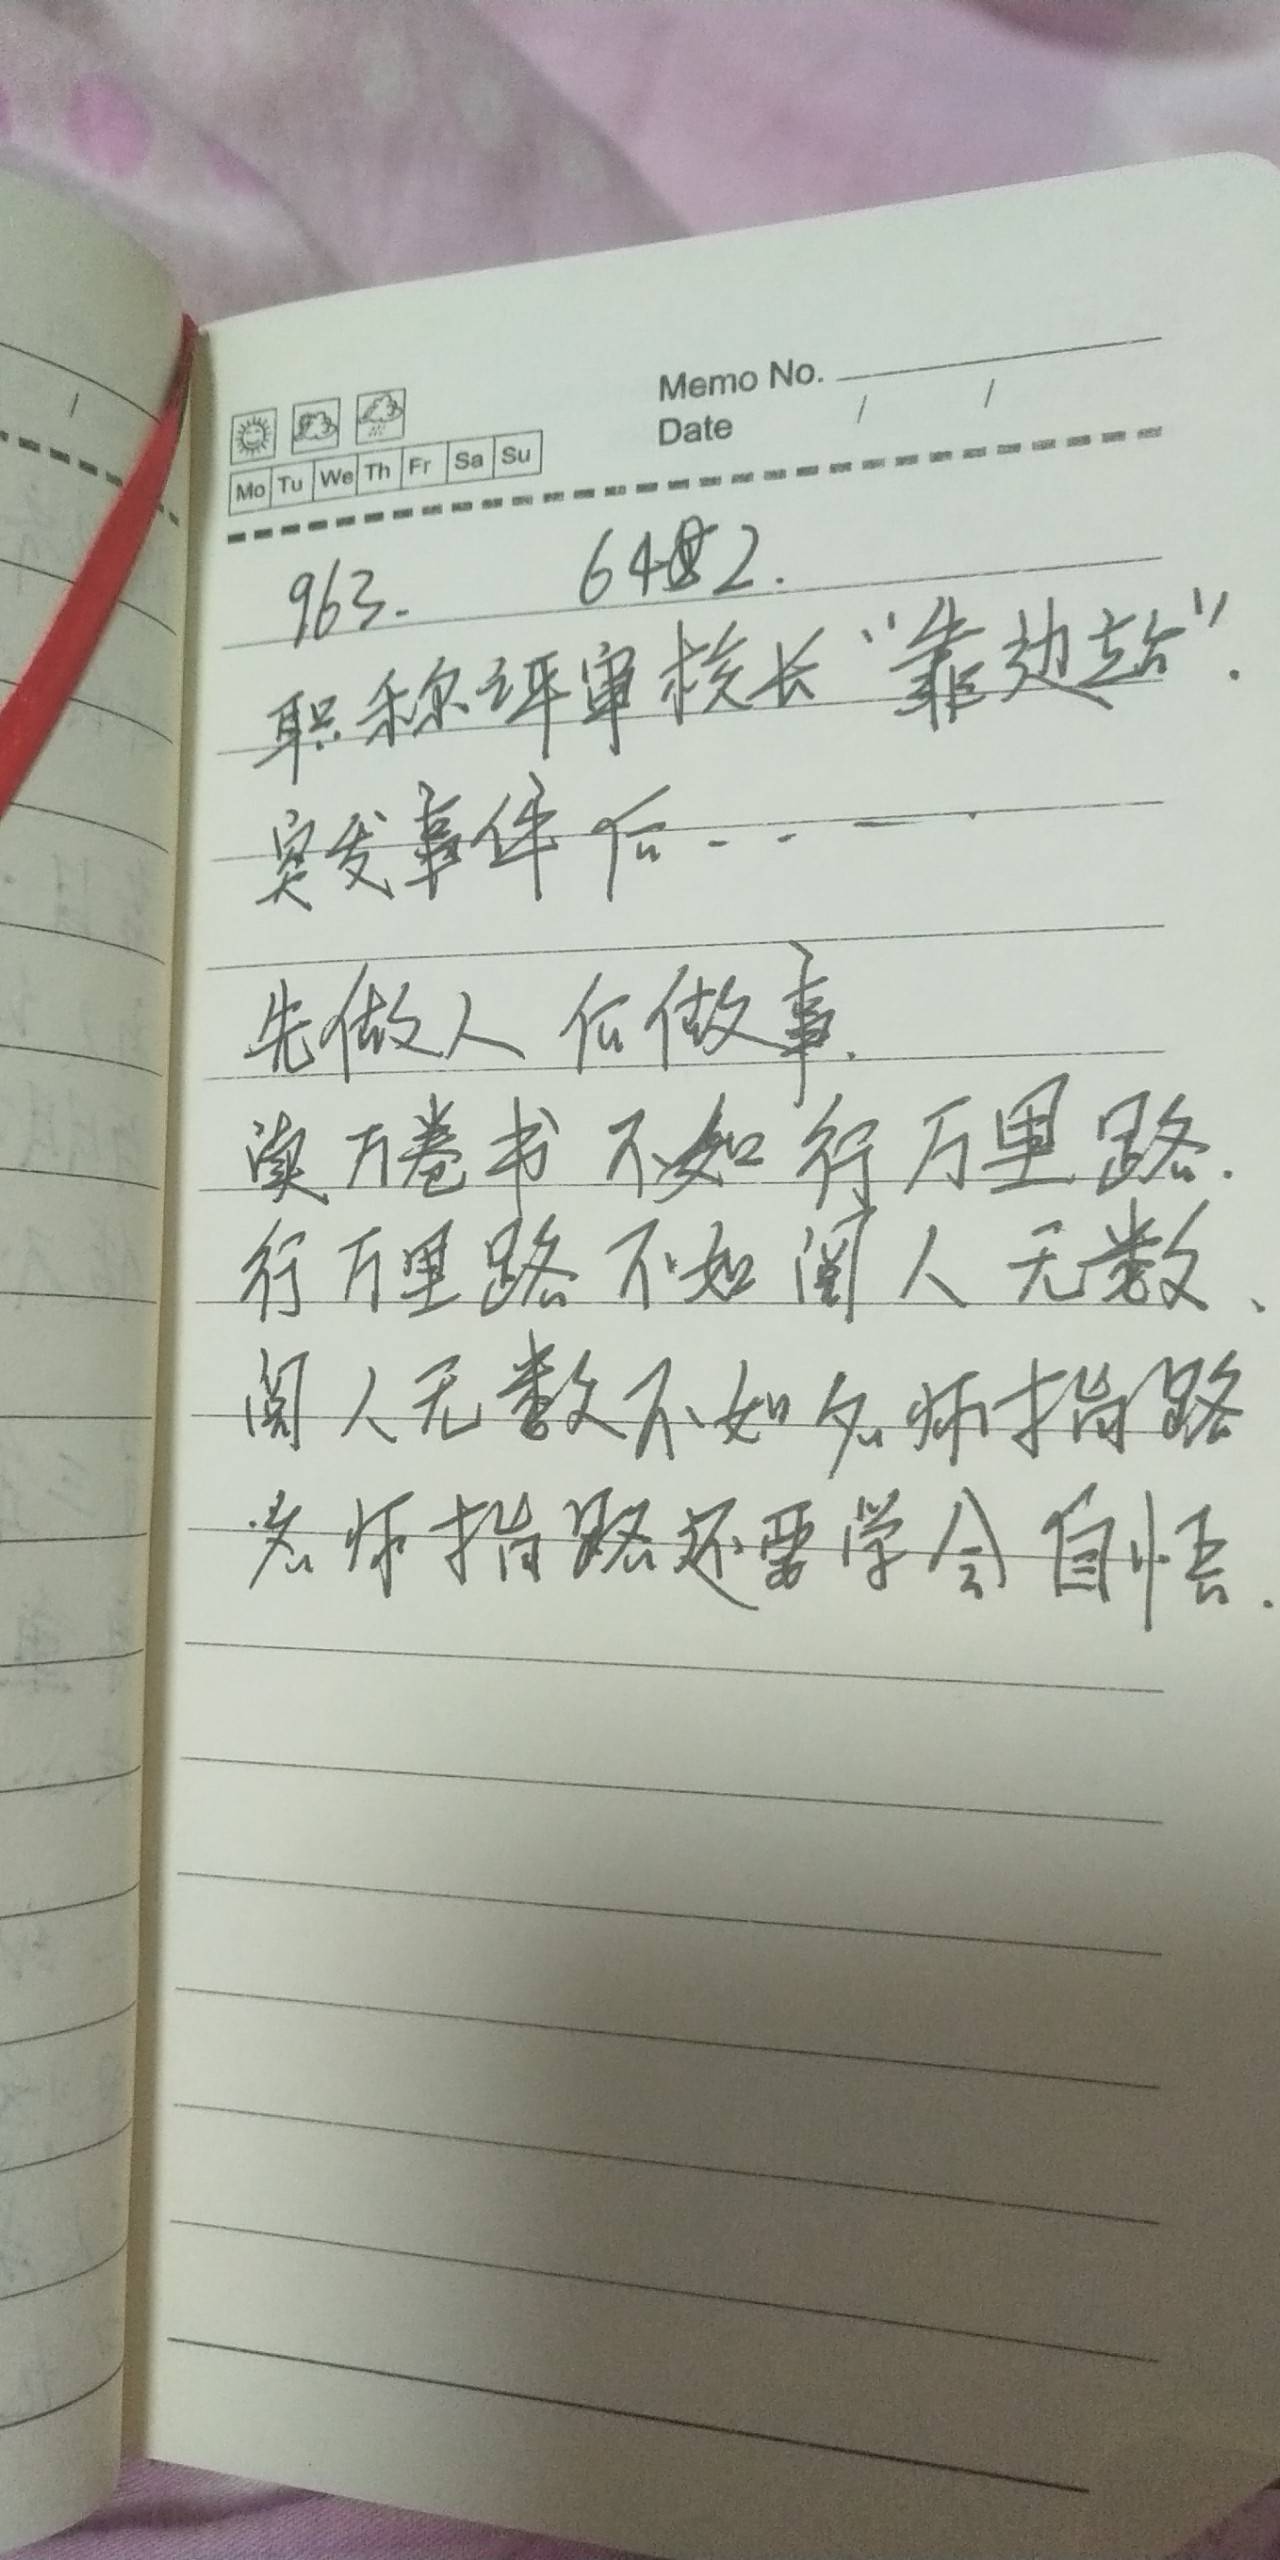 Memo No.
Date / /
Mo Tu We Th Fr Sa Su
963. 6482.
职称评审校长“靠边站”.
突发事件后......
先做人 后做事.
读万卷书 不如行万里路.
行万里路 不如阅人无数、
阅人无数不如名师指路
名师指路还要学会自悟.